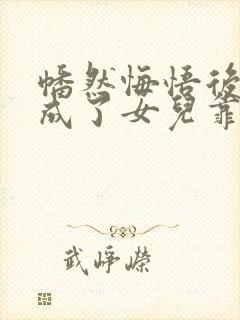 幡然悔悟後
成了女兒靠
武崢嶸